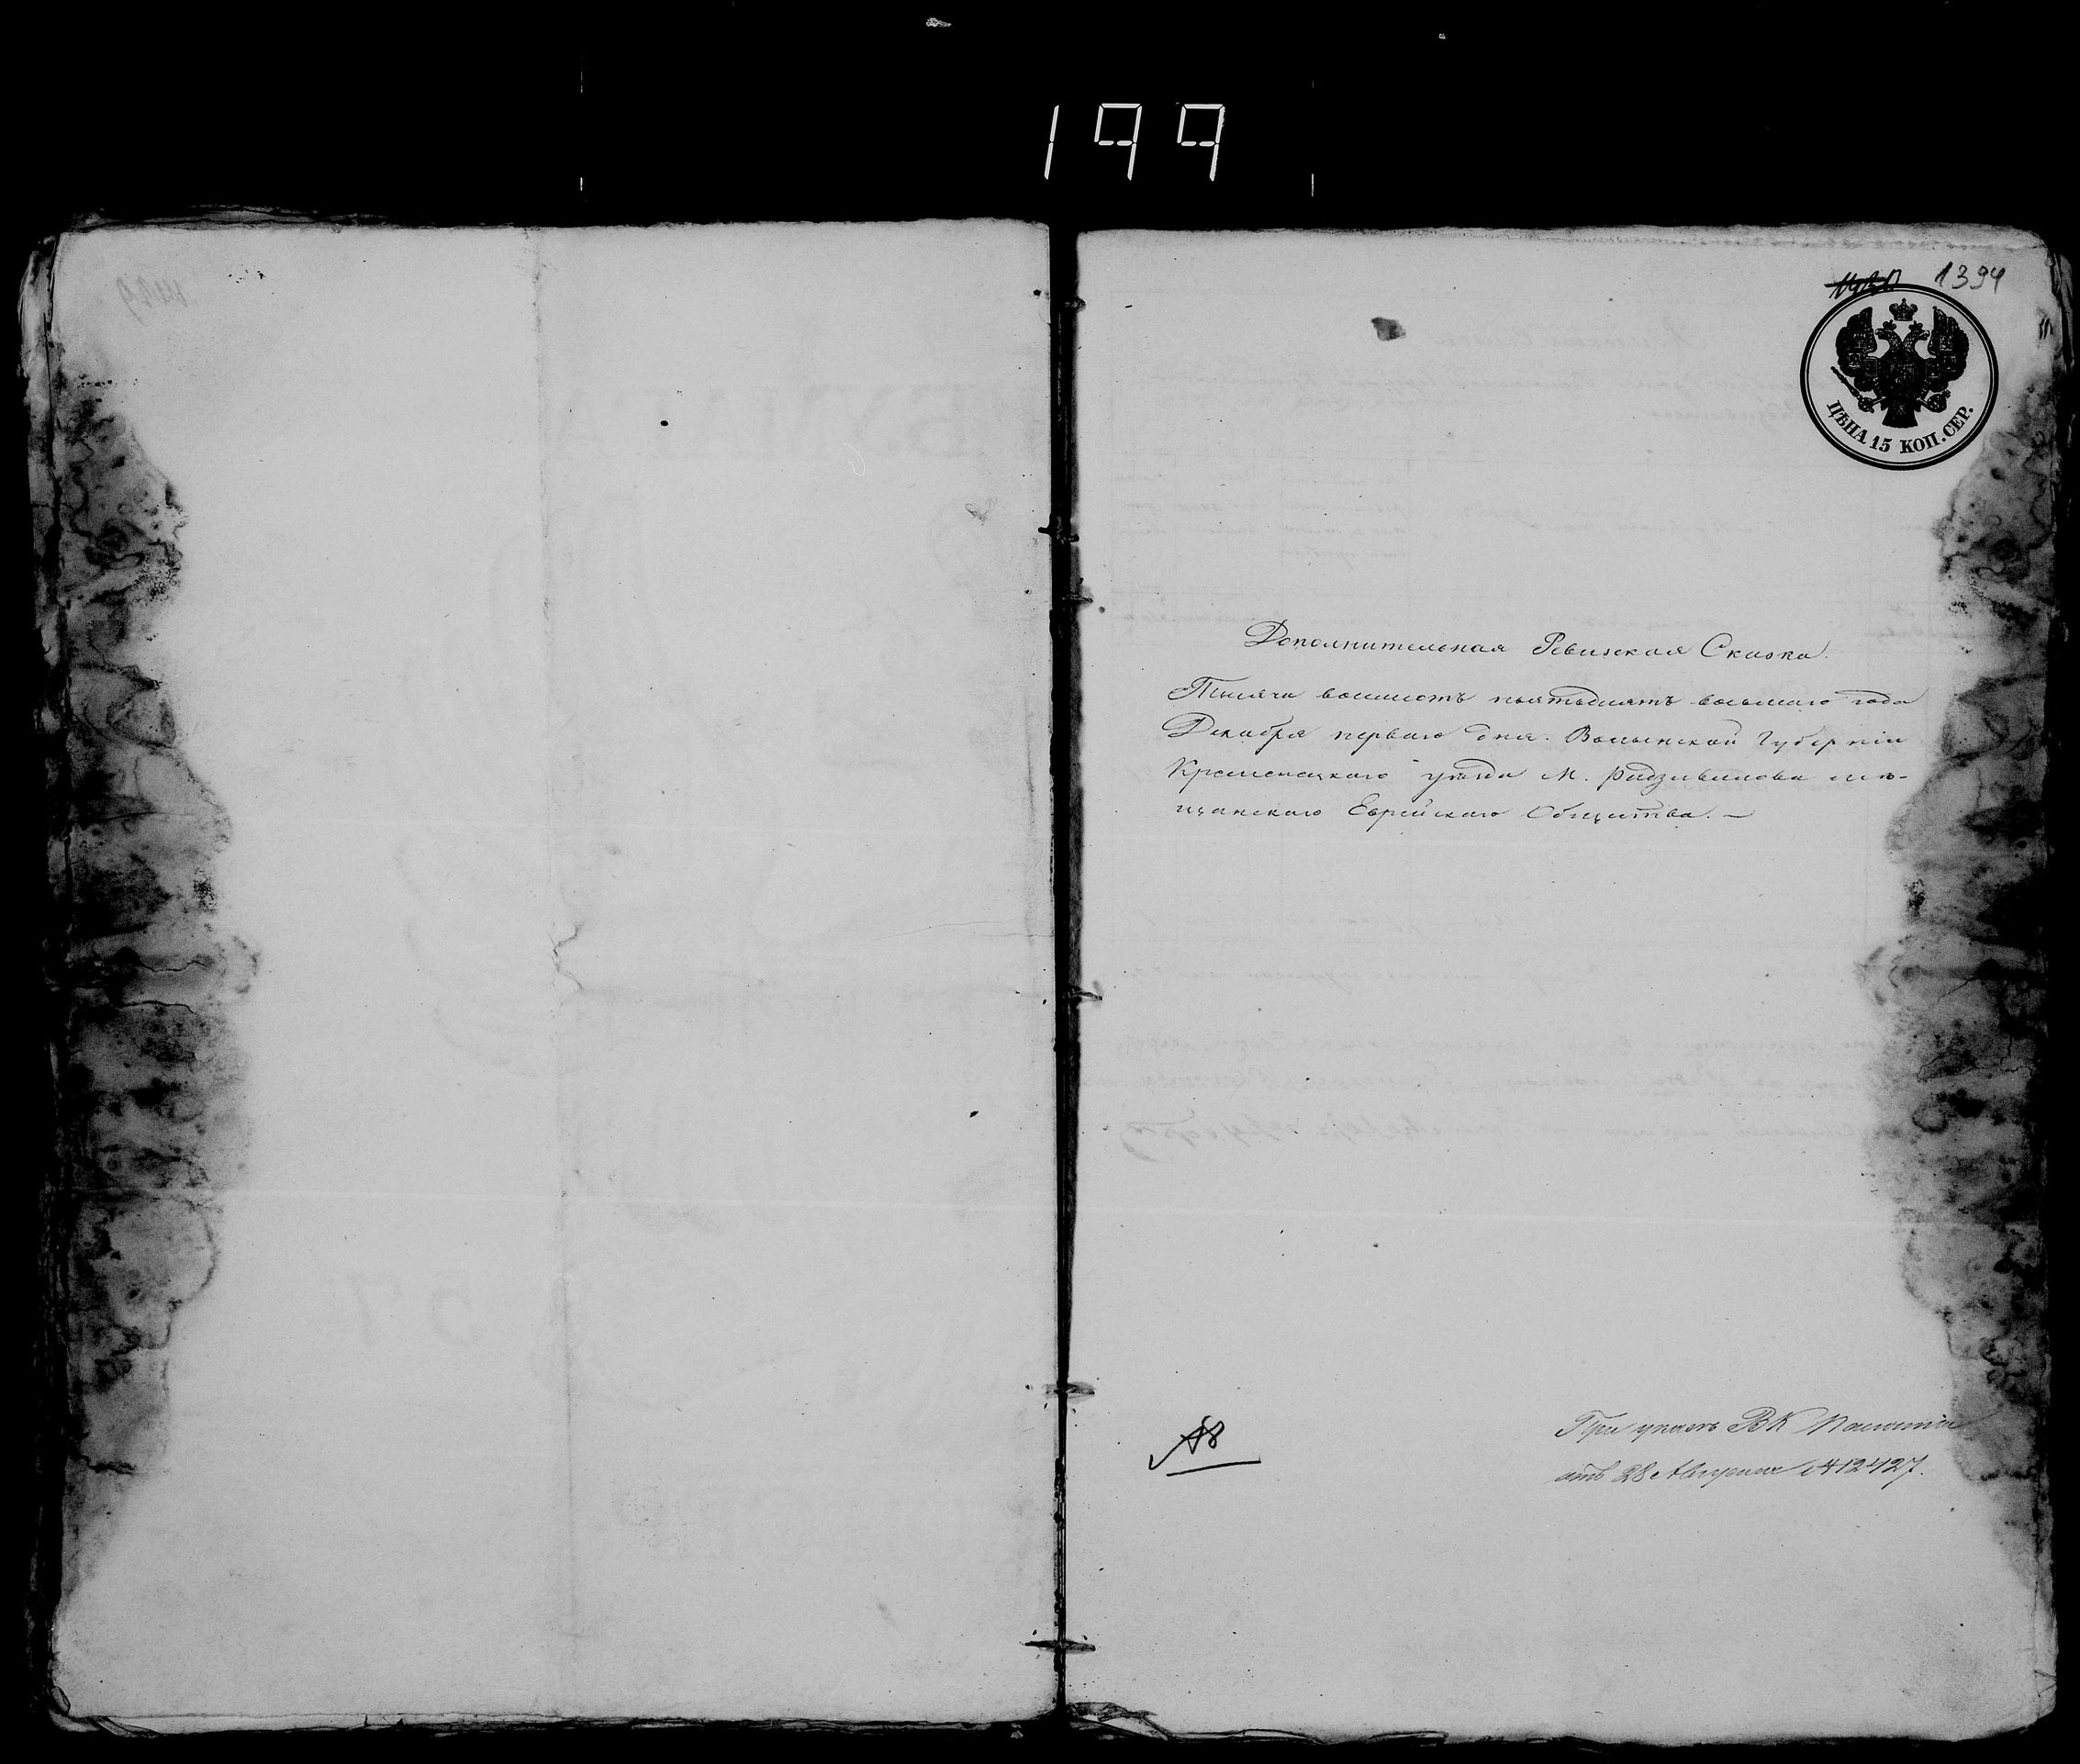 199
1394
ЦѢНА 15 КОП. СЕР.
Дополнительная Ревизская Сказка.
Тысяча восемсотъ пьятьдесятъ восьмаго года
Декабря перваго дня. Волынской Губерніи
Кременецкаго уѣзда М. Радзивилова мѣ-
щанскаго Еврейскаго Общества. —
При указѣ ВК Палаты
отъ 28 Августа № 12427.